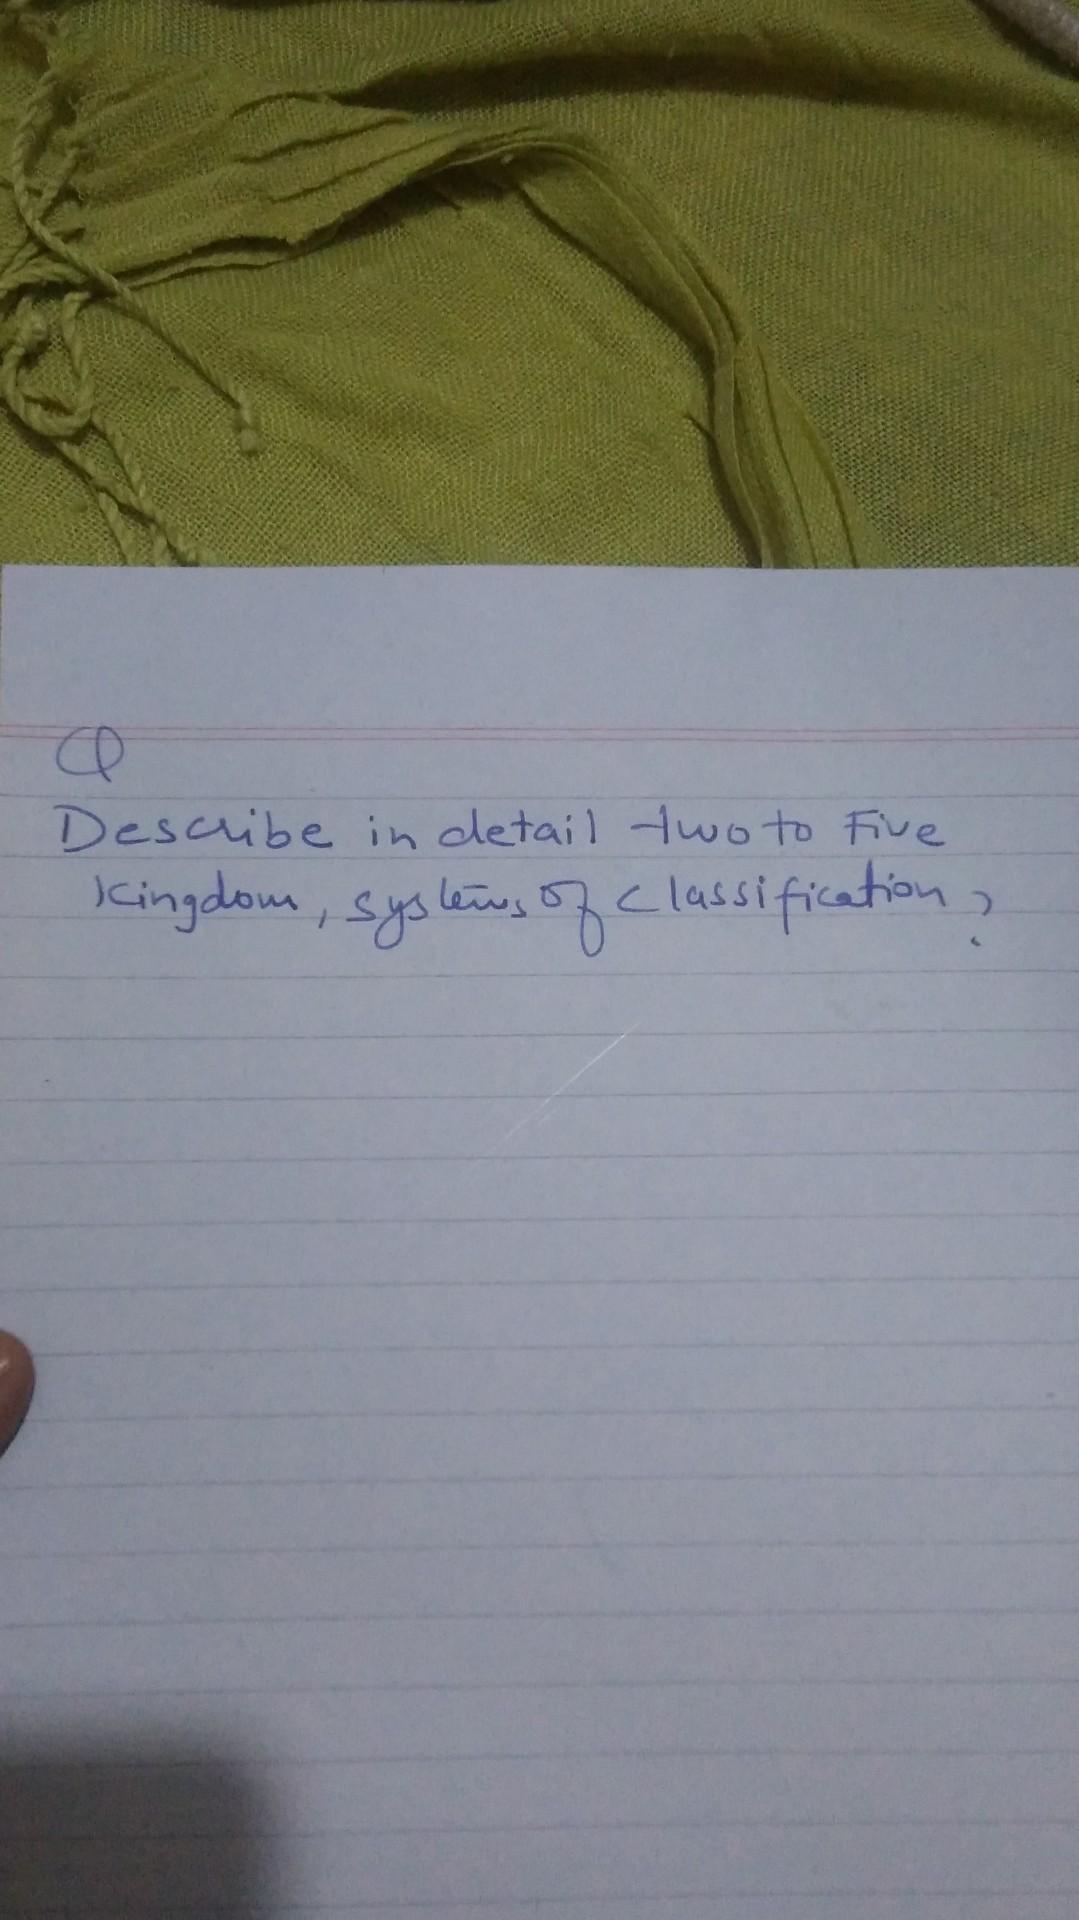 Q
Describe in detail two to Five
Kingdom, systems of classification?